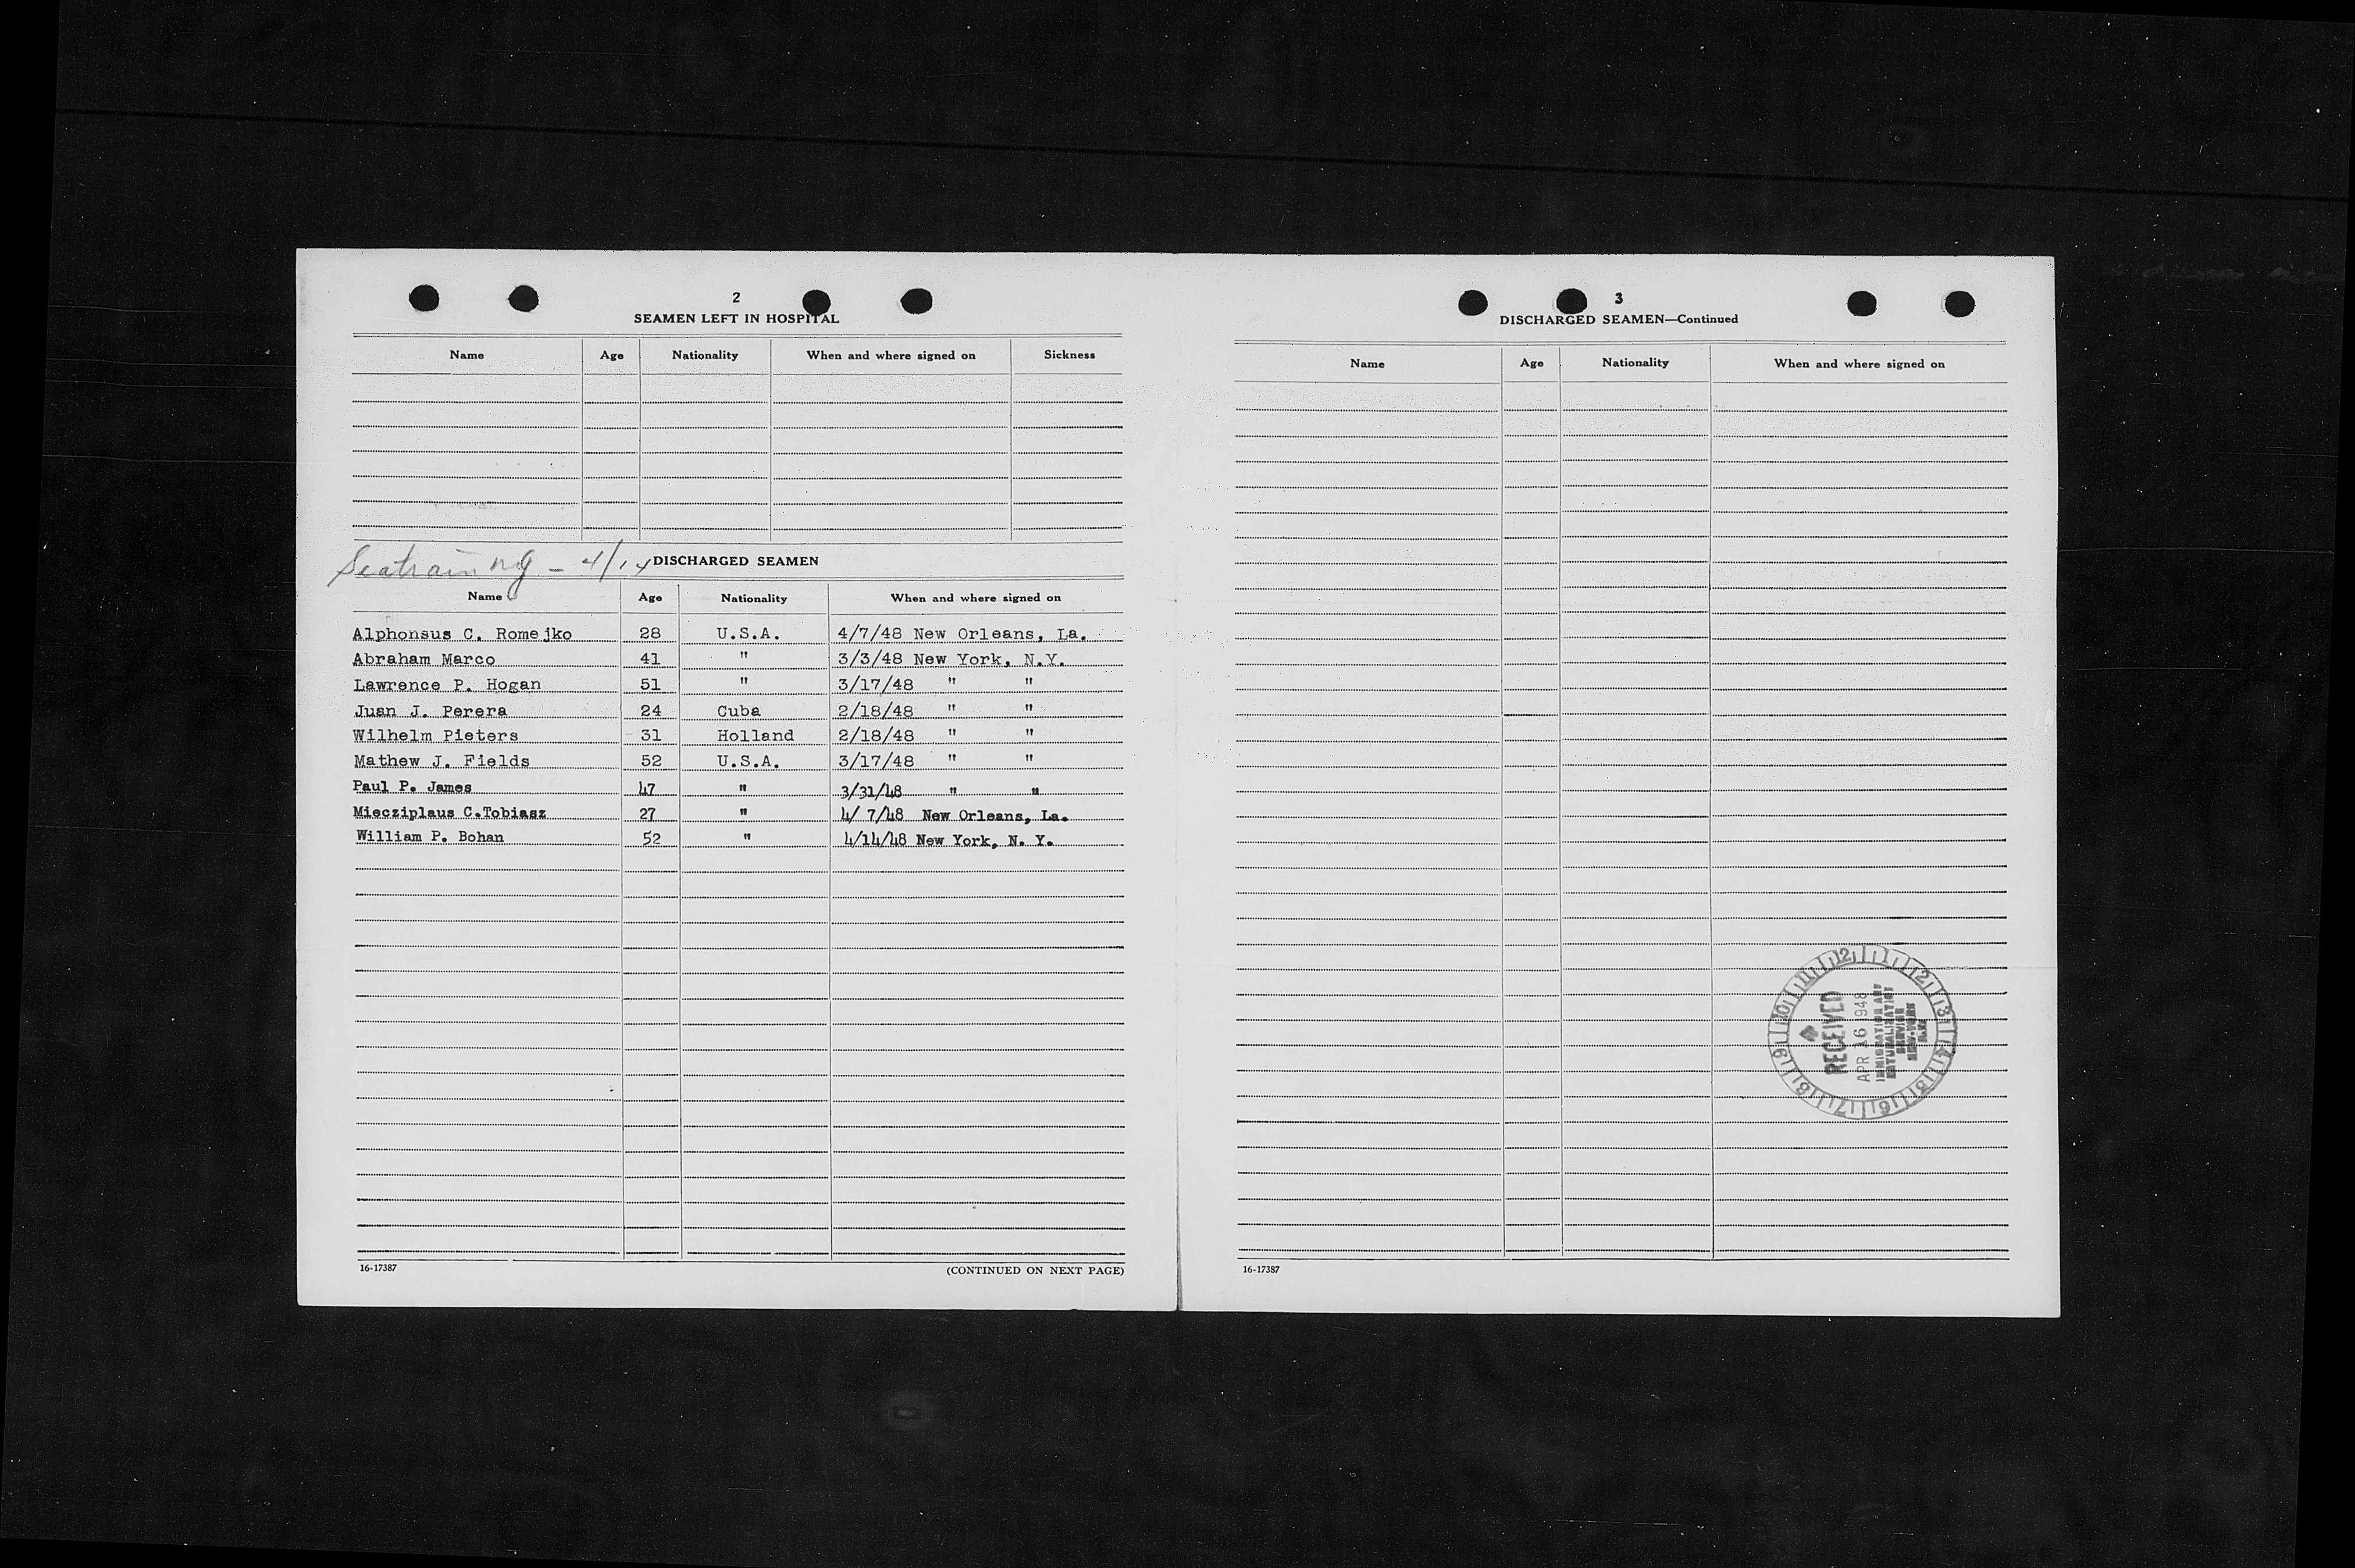 2
SEAMEN LEFT IN HOSPITAL
Name Age Nationality When and where signed on Sickness
Seatrain NY - 4/14
DISCHARGED SEAMEN
Name Age Nationality When and where signed on
Alphonsus C. Romejko 28 U.S.A. 4/7/48 New Orleans, La.
Abraham Marco 41 " 3/3/48 New York, N.Y.
Lawrence P. Hogan 51 " 3/17/48 " "
Juan J. Perera 24 Cuba 2/18/48 " "
Wilhelm Pieters 31 Holland 2/18/48 " "
Mathew J. Fields 52 U.S.A. 3/17/48 " "
Paul P. James 47 " 3/31/48 " "
Miecziplaus C.Tobiasz 27 " 4/ 7/48 New Orleans, La.
William P. Bohan 52 " 4/14/48 New York, N. Y.
16-17387
(CONTINUED ON NEXT PAGE)
3
DISCHARGED SEAMEN—Continued
Name Age Nationality When and where signed on
12 1 2 3 4 5 6 7 8 9 10 11
RECEIVED
APR 16 948
IMMIGRATION AND
NATURALIZATION
SERVICE
NEW YORK
16-17387